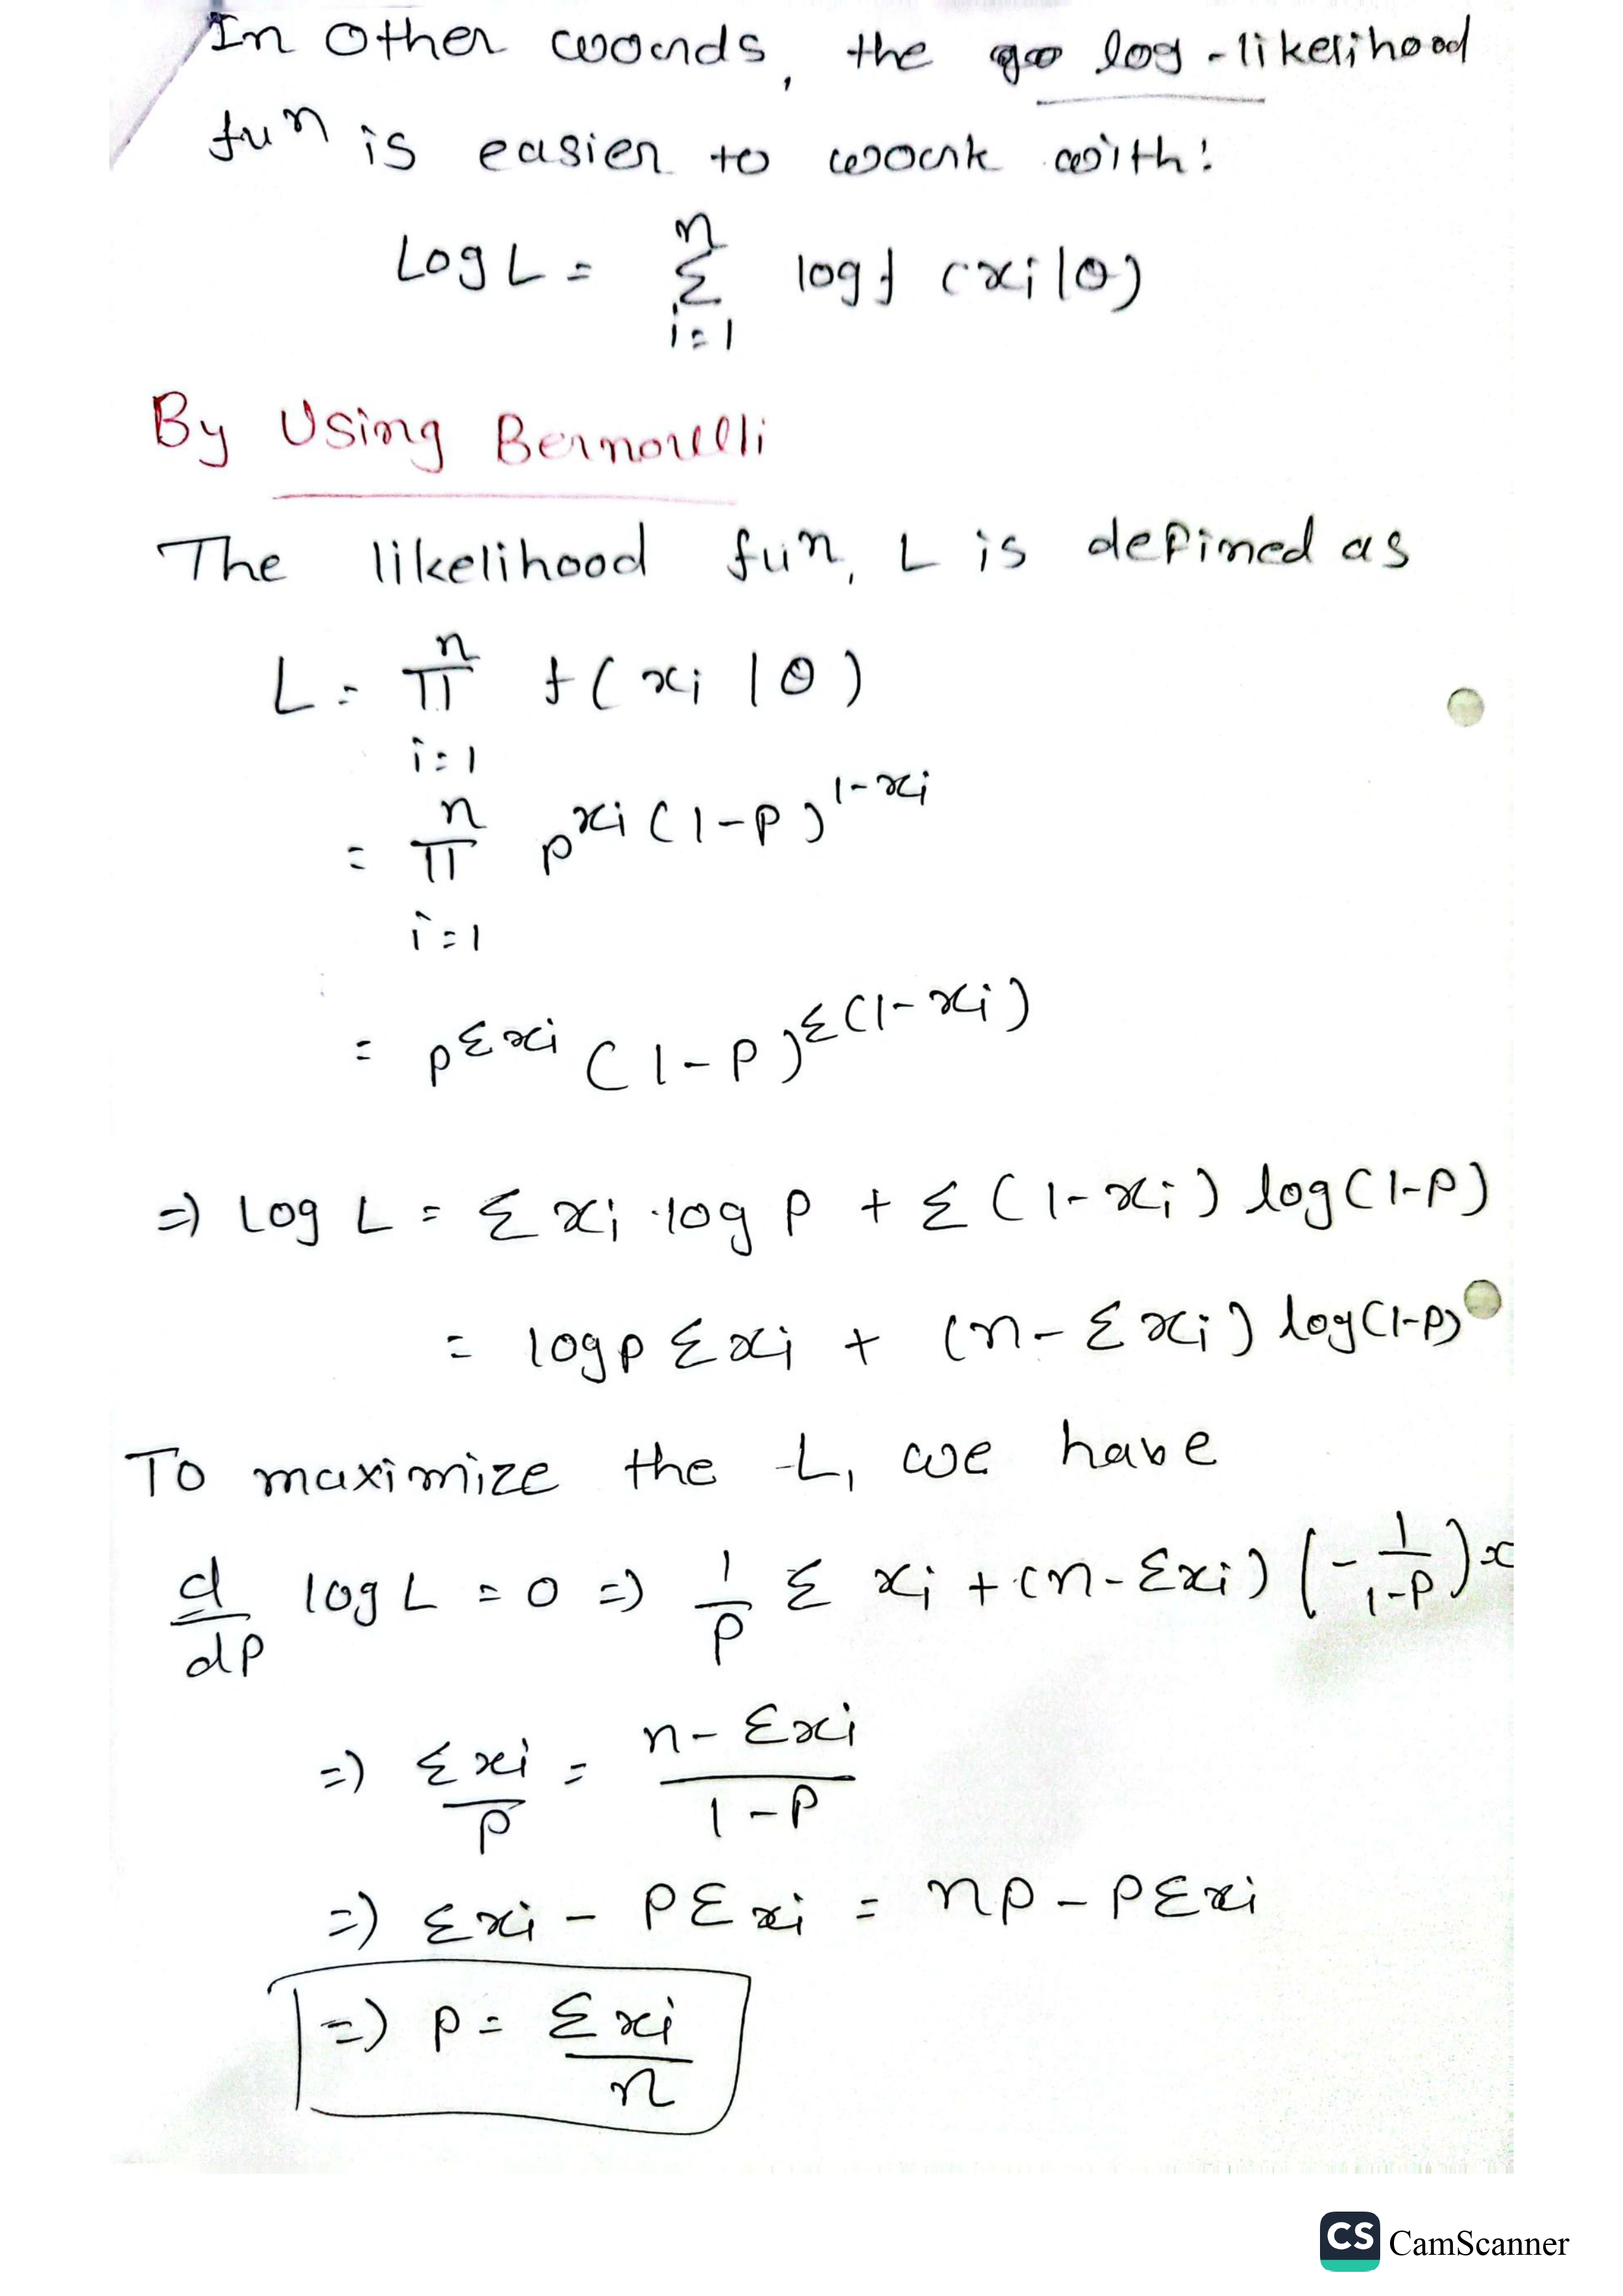 In Other words, the log-likelihood
fuⁿ is easier to work with:
Log L = n Σ i=1 log f (xi|θ)
By Using Bernoulli
The likelihood fun, L is defined as
L = n π i=1 f(xi | θ)
= n π i=1 p^xi (1-p)^1-xi
= p^Σxi (1-p)^Σ(1-xi)
=> Log L = Σ xi · log p + Σ (1-xi) log(1-p)
= log p Σ xi + (n - Σ xi) log(1-p)
To maximize the L, we have
d/dp log L = 0 => 1/p Σ xi + (n - Σxi) (- 1/1-p)
=> Σ xi / p = n - Σxi / 1-p
=> Σxi - PΣxi = np - PΣxi
=> p = Σxi / n
CS CamScanner